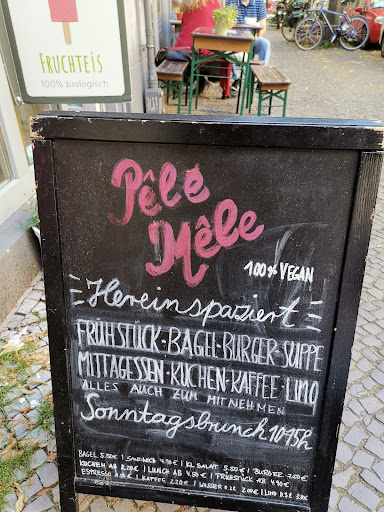 FRUCHTEIS
100% biologisch
Pêle
Mêle
100% VEGAN
Hereinspaziert
FRÜHSTÜCK·BAGEL·BURGER·SUPPE
MITTAGESSEN·KUCHEN·KAFFEE·LIMO
ALLES AUCH ZUM MITNEHMEN
Sonntagsbrunch 10-15h
BAGEL 5.50€ | SANDWICH 4.90€ | KL. SALAT 5.50€ | BURGER
KUCHEN AB 2.20€ | LUNCH AB 4.50€ | FRÜHSTÜCK AB 4.90€
ESPRESSO | KAFFEE 2.20€ | WASSER 0.2L 2.00€ | LIMO